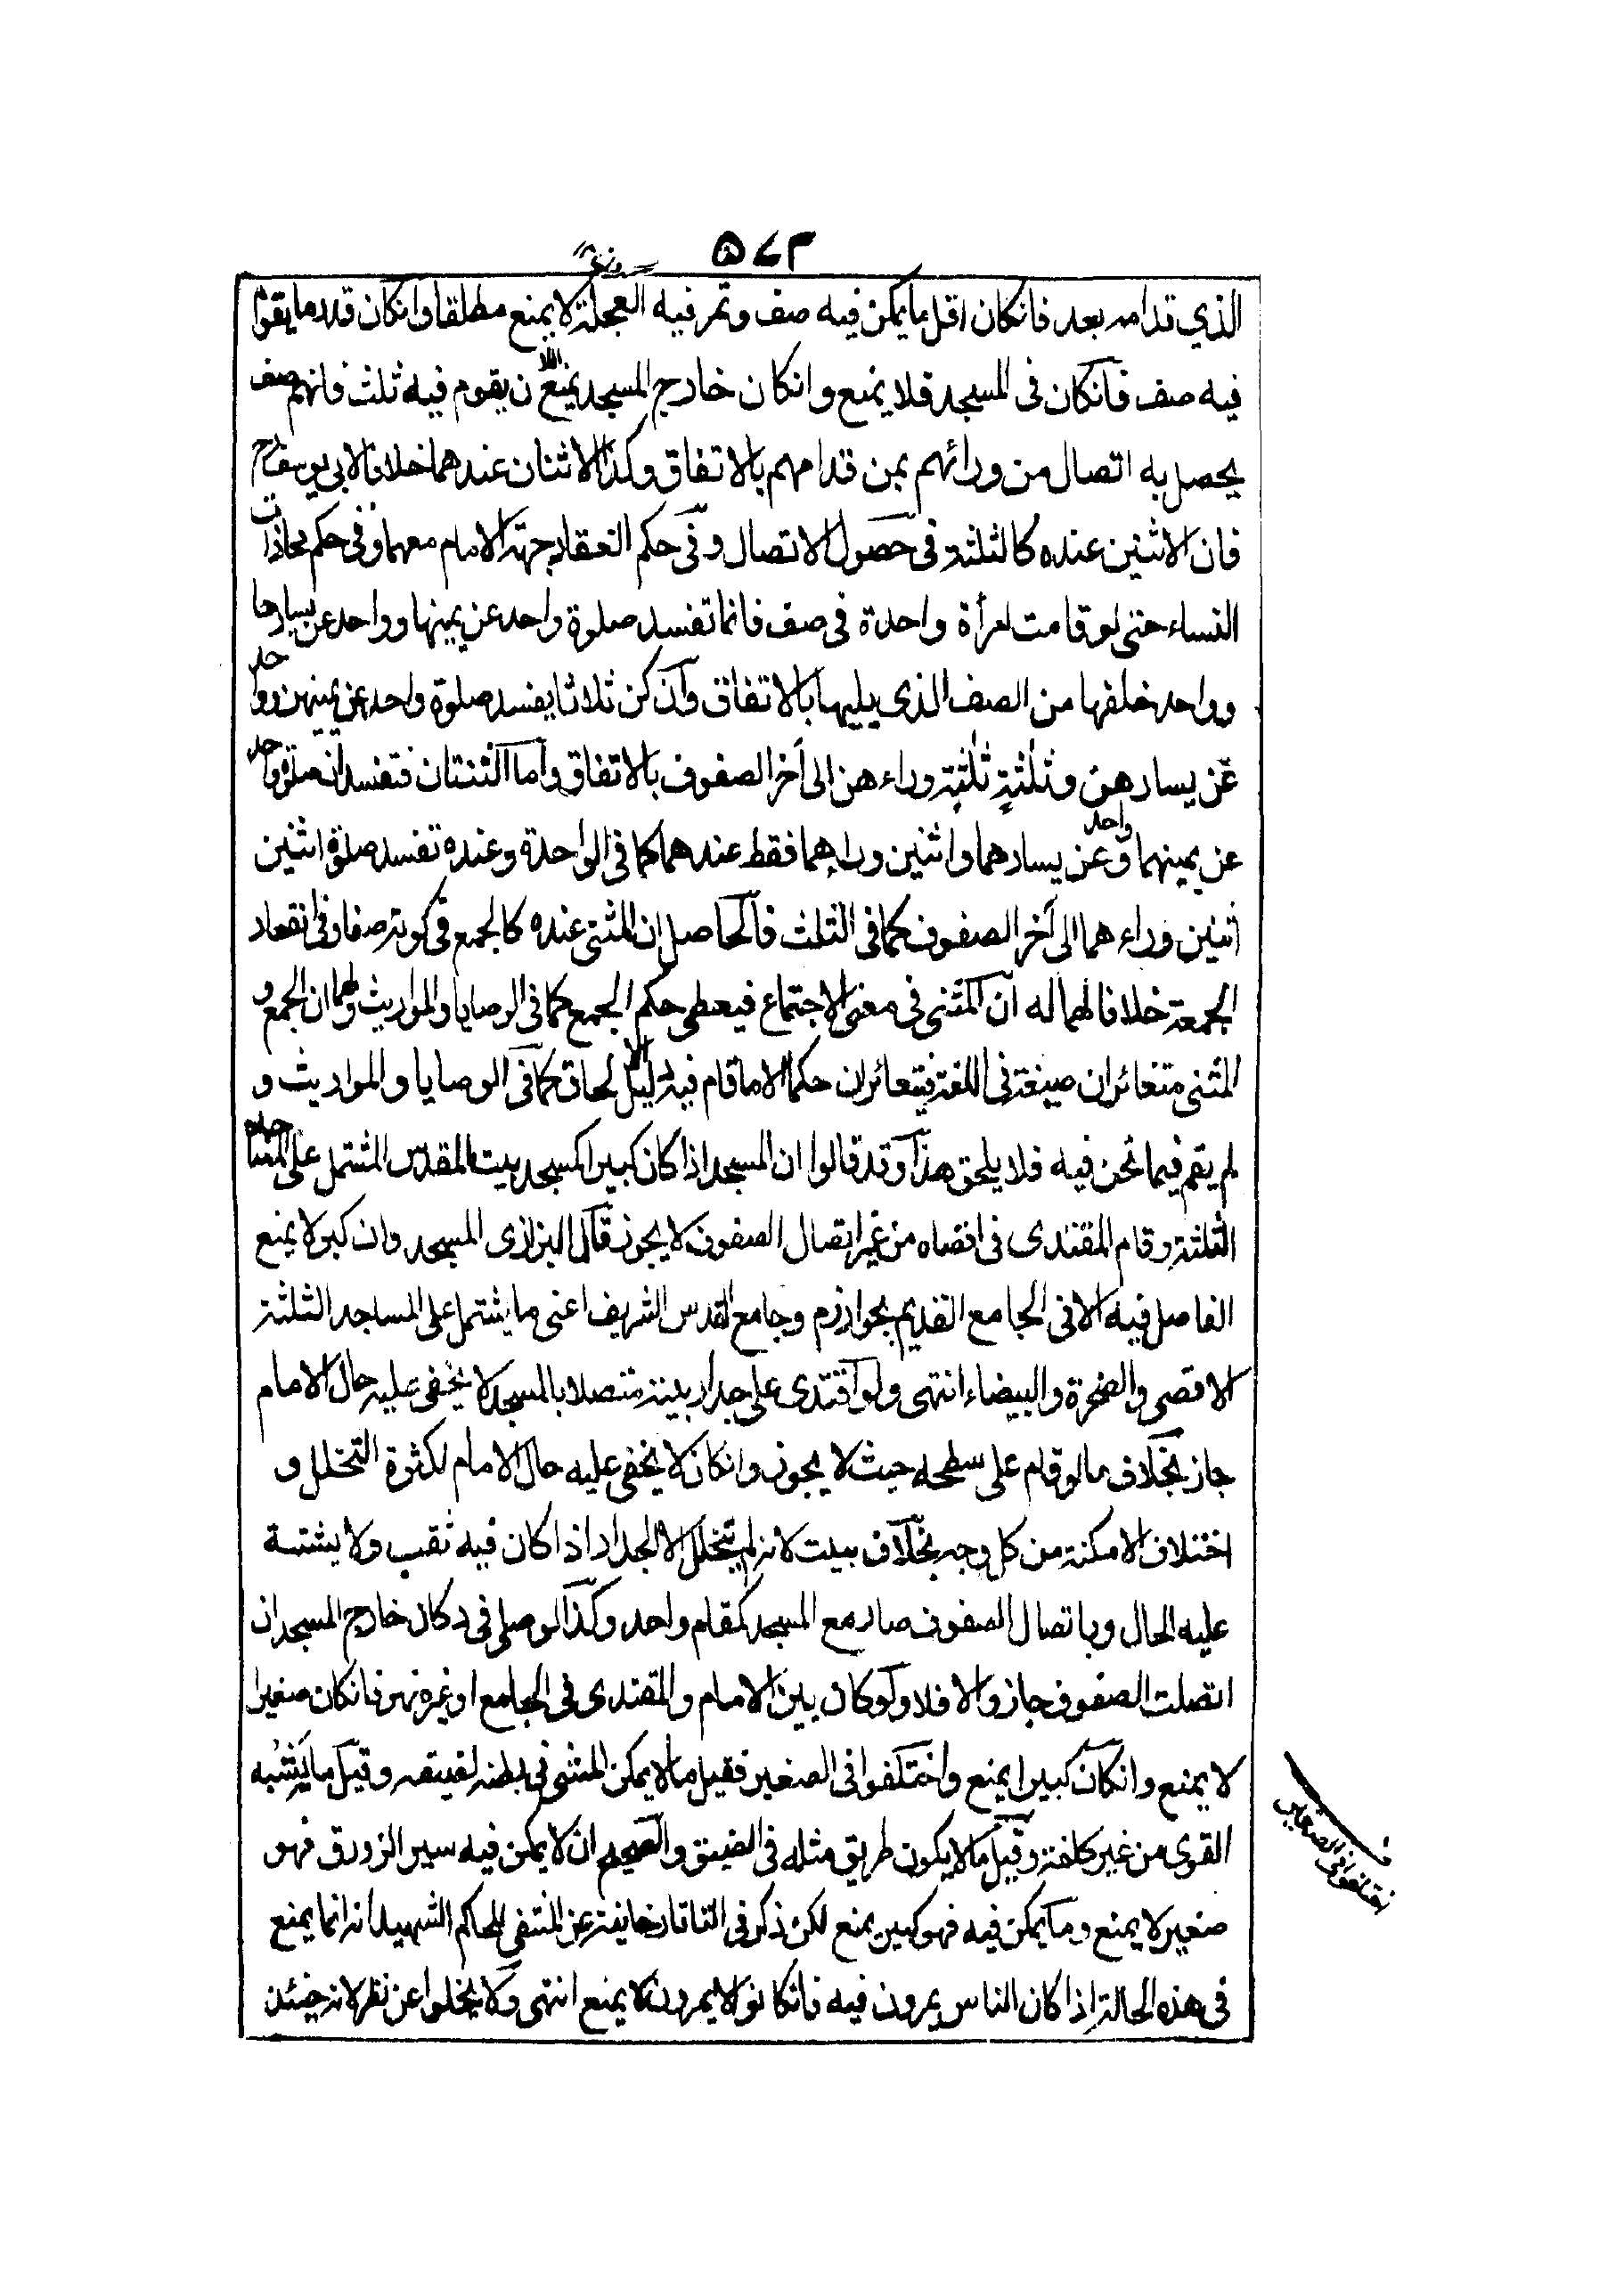 ٥٤٣
الذي قدامه بعد فانكان اقل ما يمكن فيه صف وتمر فيه العجلة لا يمنع مطلقا وانكان قدر ما يقوم
فيه صف فانكان فى المسجد فلا يمنع وانكان خارج المسجد يمنع الا ان يقوم فيه ثلث فانهم صف
يحصل به اتصال من ورائهم بمن قدامهم بالاتفاق وكذا الاثنان عندهما خلافا لابى يوسف رح
فان الاثنين عنده كالثلثة فى حصول الاتصال وفى حكم انعقاد جهة الامام معهما وفى حكم محاذات
النساء حتى لو قامت امرأة واحدة فى صف فانما تفسد صلوة واحد عن يمينها وواحد عن يسارها
وواحد خلفها من الصف الذى يليها بالاتفاق وان كن ثلاثا يفسد صلوة واحد عن يمينهن وواحد
عن يسارهن وثلثة ثلثة وراءهن الى آخر الصفوف بالاتفاق واما الثنتان فتفسدان صلوة واحد
عن يمينهما وواحد عن يسارهما واثنين وراءهما فقط عندهما كما فى الواحدة وعنده تفسد صلوة اثنين
اثنين وراءهما الى آخر الصفوف كما فى الثلث فالحاصل ان المثنى عنده كالجمع فى كونه صفا وفى انقعاد
الجمعة خلافا لهما له ان المثنى فى معنى الاجتماع فيعطى حكم الجمع كما فى الوصايا والمواريث ولهما ان الجمع و
المثنى متغائران صيغة فى اللغة فيتغائران حكما الا ما قام فيه دليل الالحاق كما فى الوصايا والمواريث و
لم يقم فيما نحن فيه فلا يلحق هذا وقد قالوا ان المسجد اذا كان كبيرا كمسجد بيت المقدس المشتمل على المساجد
الثلثة وقام المقتدى فى اقصاه من غير اتصال الصفوف لا يجوز قال البزازى المسجد وان كبر لا يمنع
الفاصل فيه الا فى الجامع القديم بخوارزم وجامع القدس الشريف اعنى ما يشتمل على المساجد الثلثة
الاقصى والصخرة والبيضاء انتهى ولو اقتدى على جدار بيته متصلا بالمسجد لا يخفى عليه حال الامام
جاز بخلاف ما لو قام على سطحه حيث لا يجوز وانكان لا يخفى عليه حال الامام لكثرة التخلل و
اختلاف الامكنة من كل وجه بخلاف بيت لانه لم يتخلل الا الجدار اذا كان فيه ثقب ولا يشتبه
عليه الحال وباتصال الصفوف صار مع المسجد كمقام واحد وكذا لو صلى فى دكان خارج المسجد ان
اتصلت الصفوف جاز والا فلا ولو كان بين الامام والمقتدى فى الجامع او غيره نهر فانكان صغيرا
لا يمنع وانكان كبيرا يمنع واختلفوا فى الصغير فقيل ما لا يمكن المشى فى بطنه لضيقه وقيل ما يثبه
القوى من غير كلفة وقيل ما لا يكون طريق مثله فى الضيق والصحيح ان لا يمكن فيه سير الزورق فهو
صغير لا يمنع وما يمكن فيه فهو كبير يمنع لكن ذكر فى التاتارخانية عن المنتقى للحاكم الشهيد انه انما يمنع
فى هذه الحالة اذا كان الناس يمرون فيه فانكانوا لا يمرون لا يمنع انتهى ولا يخلوا عن نظر لانه حينئذ